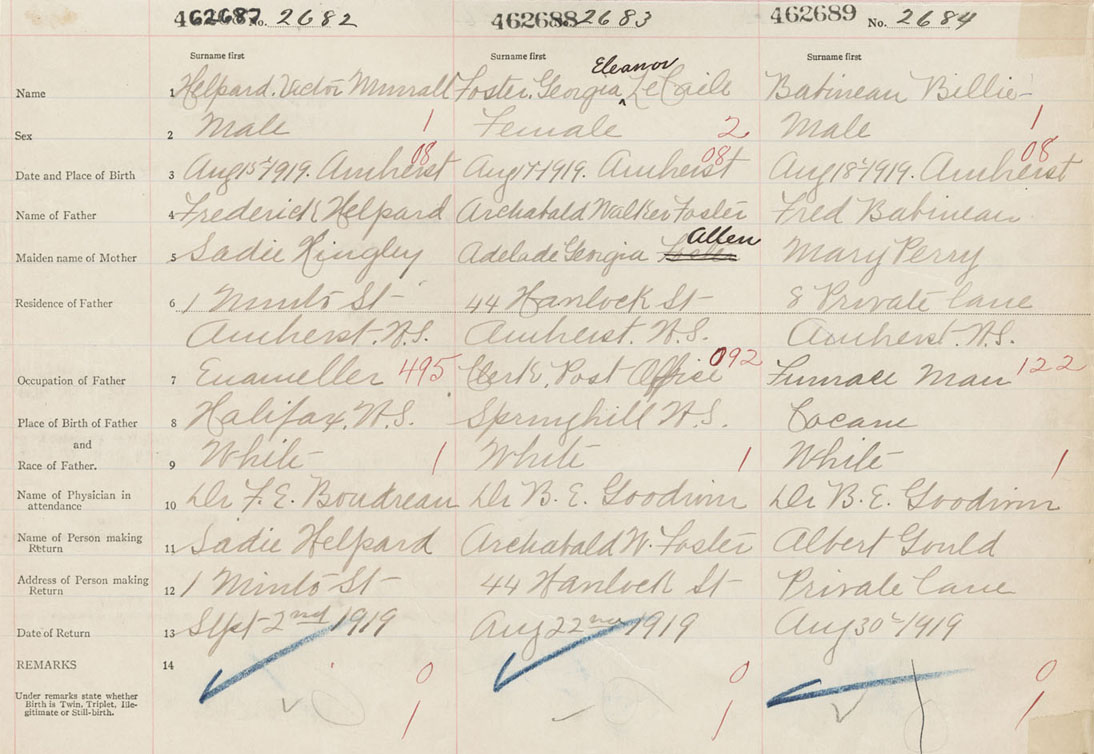 462687 No. 2682 462688 2683 462689 No. 2684
Surname first Surname first Surname first
Eleanor
Name 1 Helpard, Victor Foster, Georgia ^ Babineau Billie
Sex 2 Male 1 Female 2 Male 1
08 08 08
Date and Place of Birth 3 Aug 15th 1919. Amherst Aug 17th 1919. Amherst Aug 18th 1919. Amherst
Name of Father 4 Frederick Helpard Archabald Walker Foster Fred Babineau
Allen
Maiden name of Mother 5 Sadie Adelade Georgia Mary Perry
Residence of Father 6 1 Minto St 44 St 8 Private Lane
Amherst. N.S. Amherst. N.S. Amherst. N.S.
Occupation of Father 7 Enameller 495 Clerk, Post Office 092 Furnace Man 122
Place of Birth of Father 8 Halifax, N.S. Springhill N.S. Cocane
and
Race of Father. 9 White 1 White 1 White 1
Name of Physician in
attendance 10 Dr F. E. Boudreau Dr B. E. Goodwin Dr B. E. Goodwin
Name of Person making
Return 11 Sadie Helpard Archabald W. Foster Albert Gould
Address of Person making
Return 12 1 Minto St 44 St Private Lane
Date of Return 13 Sept 2nd 1919 Aug 22nd 1919 Aug 30th 1919
REMARKS 14 0 0 0
Under remarks state whether
Birth is Twin, Triplet, Ille-
gitimate or Still-birth. 1 1 1